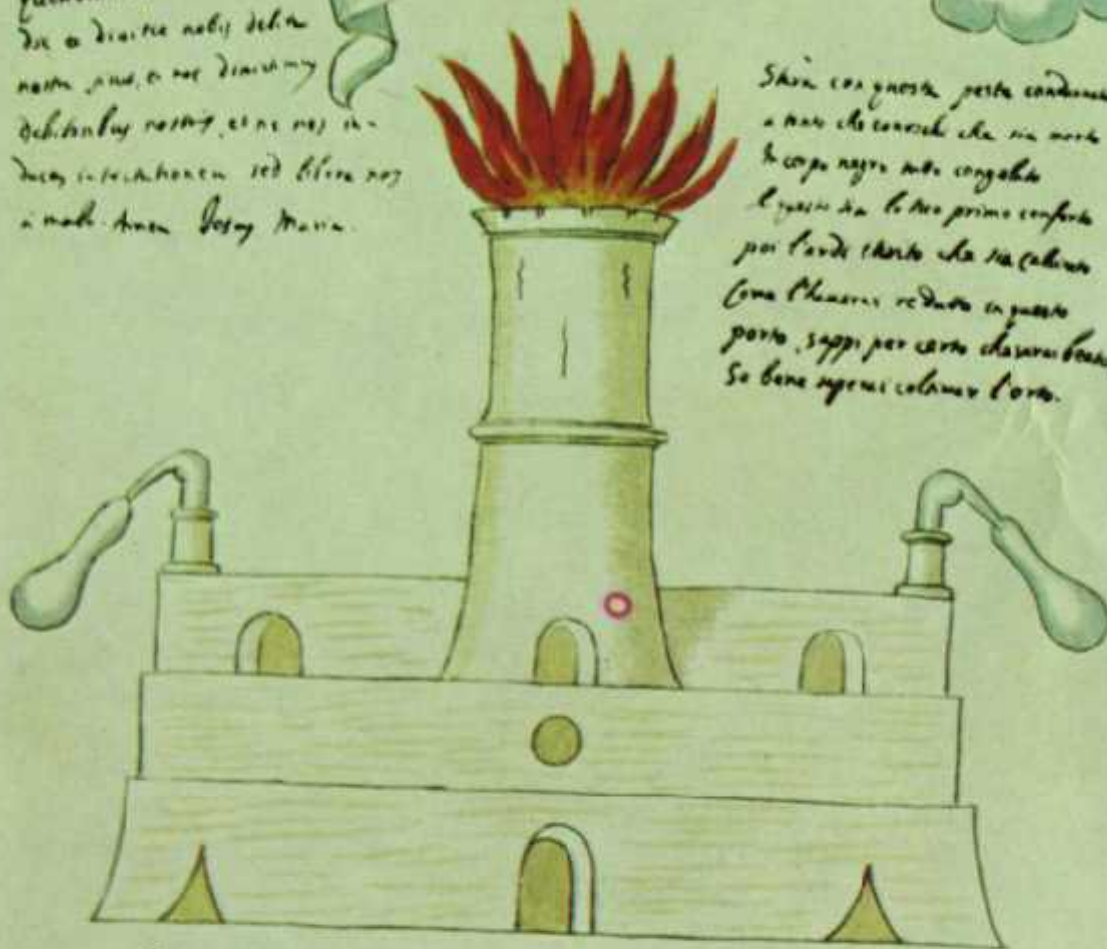 die et dimitte nobis debita
nostra sicut et nos dimittimus
debitoribus nostris, et ne nos in-
ducas in tentationem sed libera nos
a malo. Amen Jesus Maria.
con questa pesta
a tanto che conoschi che sia morto
Il corpo negro tutto congelato
E questo sia lo tuo primo conforto
poi l'ardi che sia
Come l'haverai redutto in questo
porto, sappi per certo
Se bene saperai coltivar l'orto.